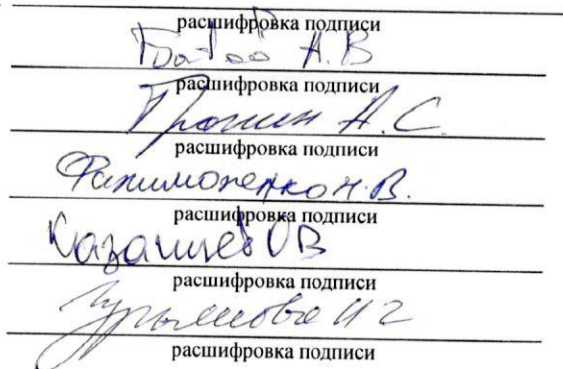 расшифровка подписи
А.В
расшифровка подписи
Пронин А.С.
расшифровка подписи
Н.В.
расшифровка подписи
Казанцев ОВ
расшифровка подписи
И Г
расшифровка подписи